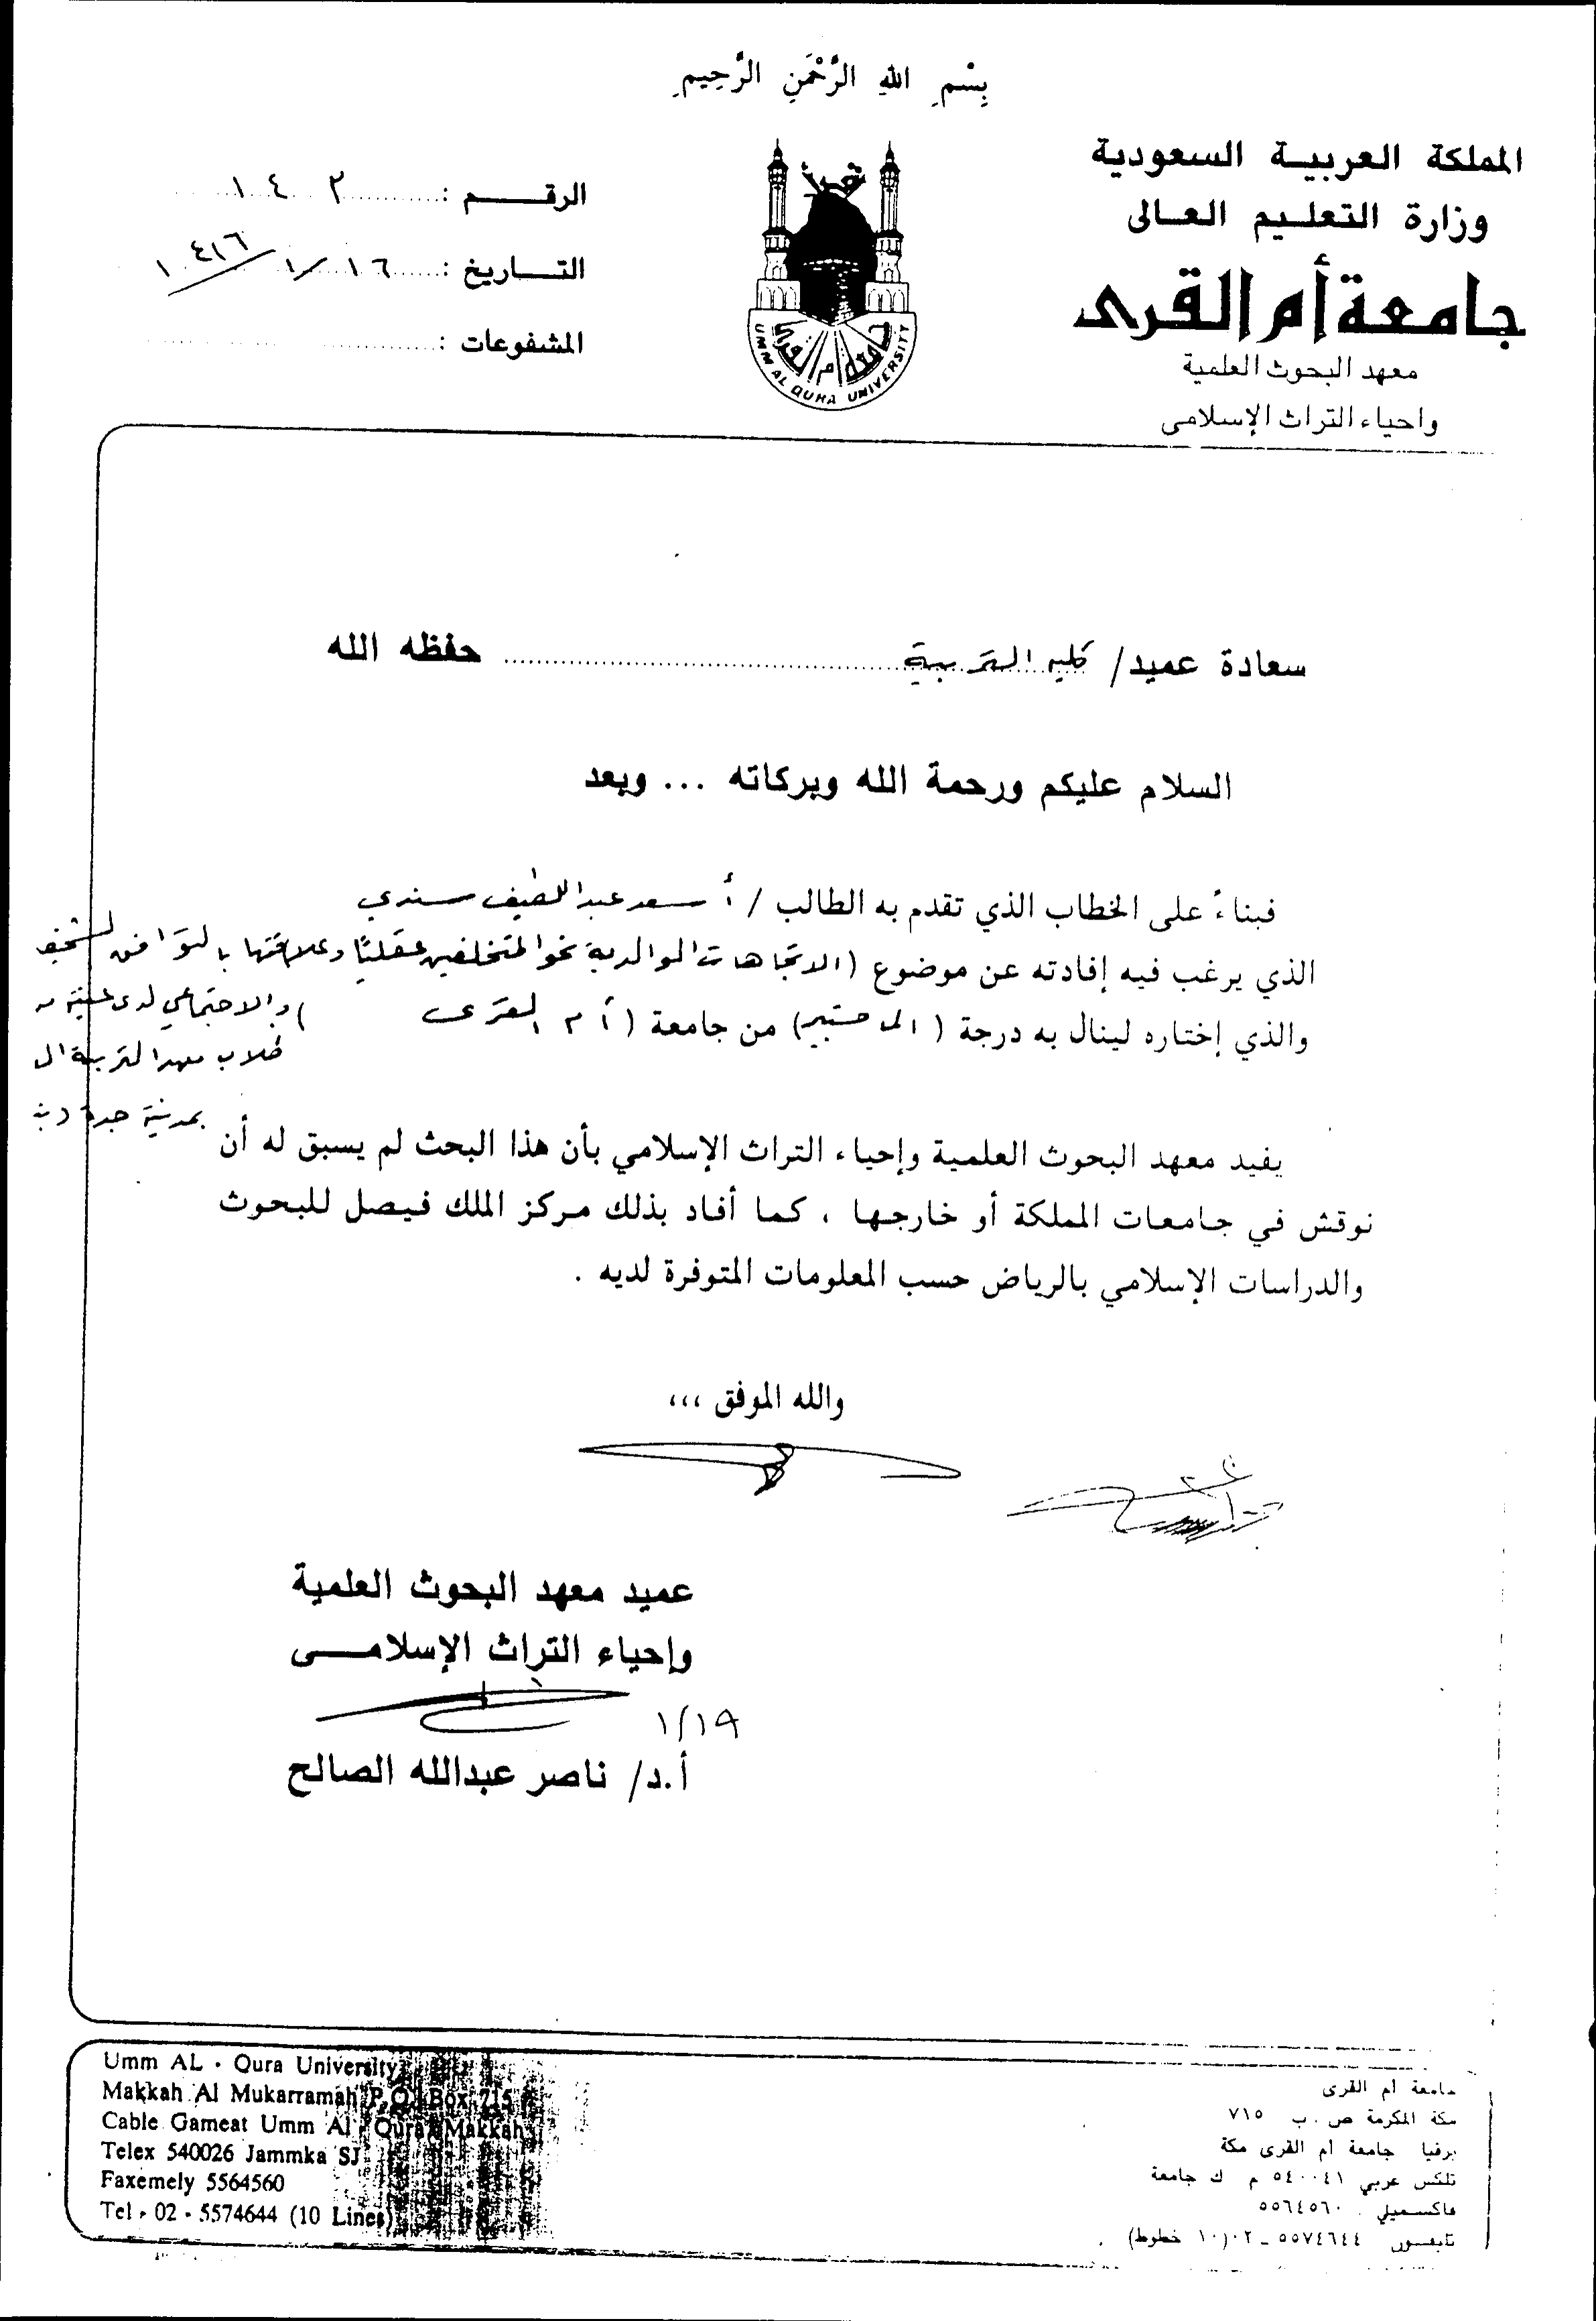 بِسْمِ اللهِ الرَّحْمَنِ الرَّحِيمِ
المملكة العربية السعودية
وزارة التعليم العالى
جامعة أم القرى
معهد البحوث العلمية
واحياء التراث الإسلامى
UMM AL QURA UNIVERSITY
جامعة أم القرى
الرقم : ١٤٠٢
التاريخ : ١٦/١/١٤١٦
المشفوعات :
سعادة عميد/ كلية التربية حفظه الله
السلام عليكم ورحمة الله وبركاته ... وبعد
فبناءً على الخطاب الذي تقدم به الطالب / أسعد عبداللطيف سندي
الذي يرغب فيه إفادته عن موضوع (الاتجاهات الوالدية نحو المتخلفين عقلياً وعلاقتها بالتوافق
والاجتماعي لدى عينة
والذي إختاره لينال به درجة ( الماجستير) من جامعة ( أم القرى )
طلاب معهد التربية
بمدينة جدة
يفيد معهد البحوث العلمية وإحياء التراث الإسلامي بأن هذا البحث لم يسبق له أن
نوقش في جامعات المملكة أو خارجها ، كما أفاد بذلك مركز الملك فيصل للبحوث
والدراسات الإسلامي بالرياض حسب المعلومات المتوفرة لديه .
والله الموفق ،،،
عميد معهد البحوث العلمية
وإحياء التراث الإسلامى
١/١٩
أ.د/ ناصر عبدالله الصالح
Umm AL - Qura University
Makkah Al Mukarramah P.O. Box 715
Cable Gameat Umm Al - Qura Makkah
Telex 540026 Jammka SJ
Faxemely 5564560
Tel - 02 - 5574644 (10 Lines)
جامعة أم القرى
مكة المكرمة ص . ب ٧١٥
برقيا جامعة أم القرى مكة
تلكس عربي ٥٤٠٠٤١ م ك جامعة
فاكسميلي ٥٥٦٤٥٦٠
تليفون ٥٥٧٤٦٤٤ - ٠٢ (١٠ خطوط)